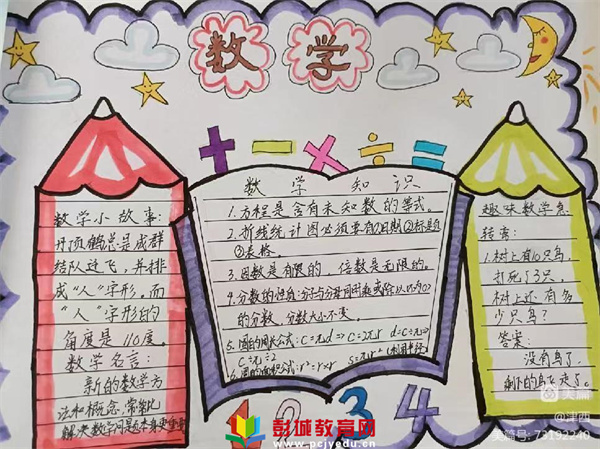 数学
数学小故事:
丹顶鹤总是成群
结队迁飞，并排
成“人”字形，而
“人”字形的
角度是110度。
数学名言：
新的数学方
法和概念，常常比
解决数学问题本身更重要
数学知识
1.方程是含有未知数的等式。
2.折线统计图必须要有①日期②标题
③表格。
3.因数是有限的，倍数是无限的。
4.分数的性质:分子与分母同时乘或除以
的分数，分数大小不变。
5.圆的周长公式:C=πd⇒C=2πr
6.圆的面积公式:
趣味数学急
转弯:
1.树上有10只鸟，
打死了3只。
树上还有多
少只鸟？
答案:
没有鸟了，
剩下的鸟飞走了。
1 2 3 4
彭城教育网
www.pcjyedu.cn
美篇
@津西
美篇号: 73192240